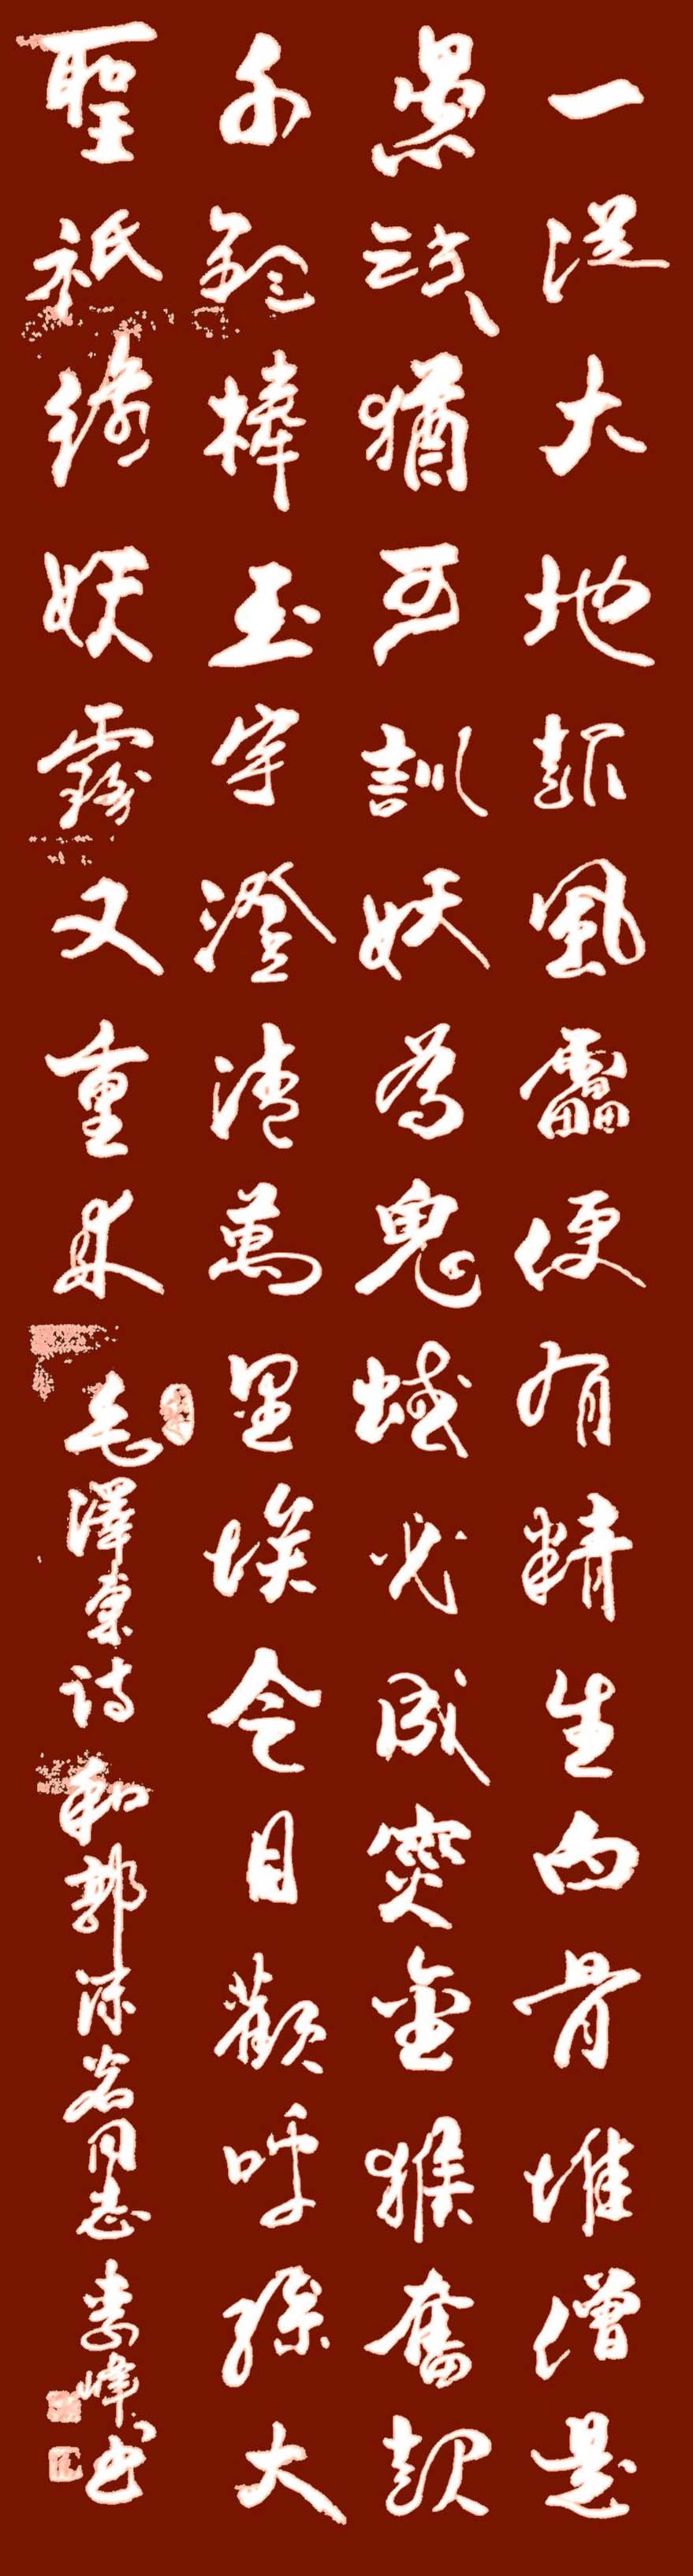 一從大地起風靁便有精生白骨堆僧是
愚氓猶可訓妖為鬼蜮必成災金猴奮起
千鈞棒玉宇澄清萬里埃今日歡呼孫大
聖祇緣妖霧又重來 毛澤東詩 和郭沫若同志 峰书